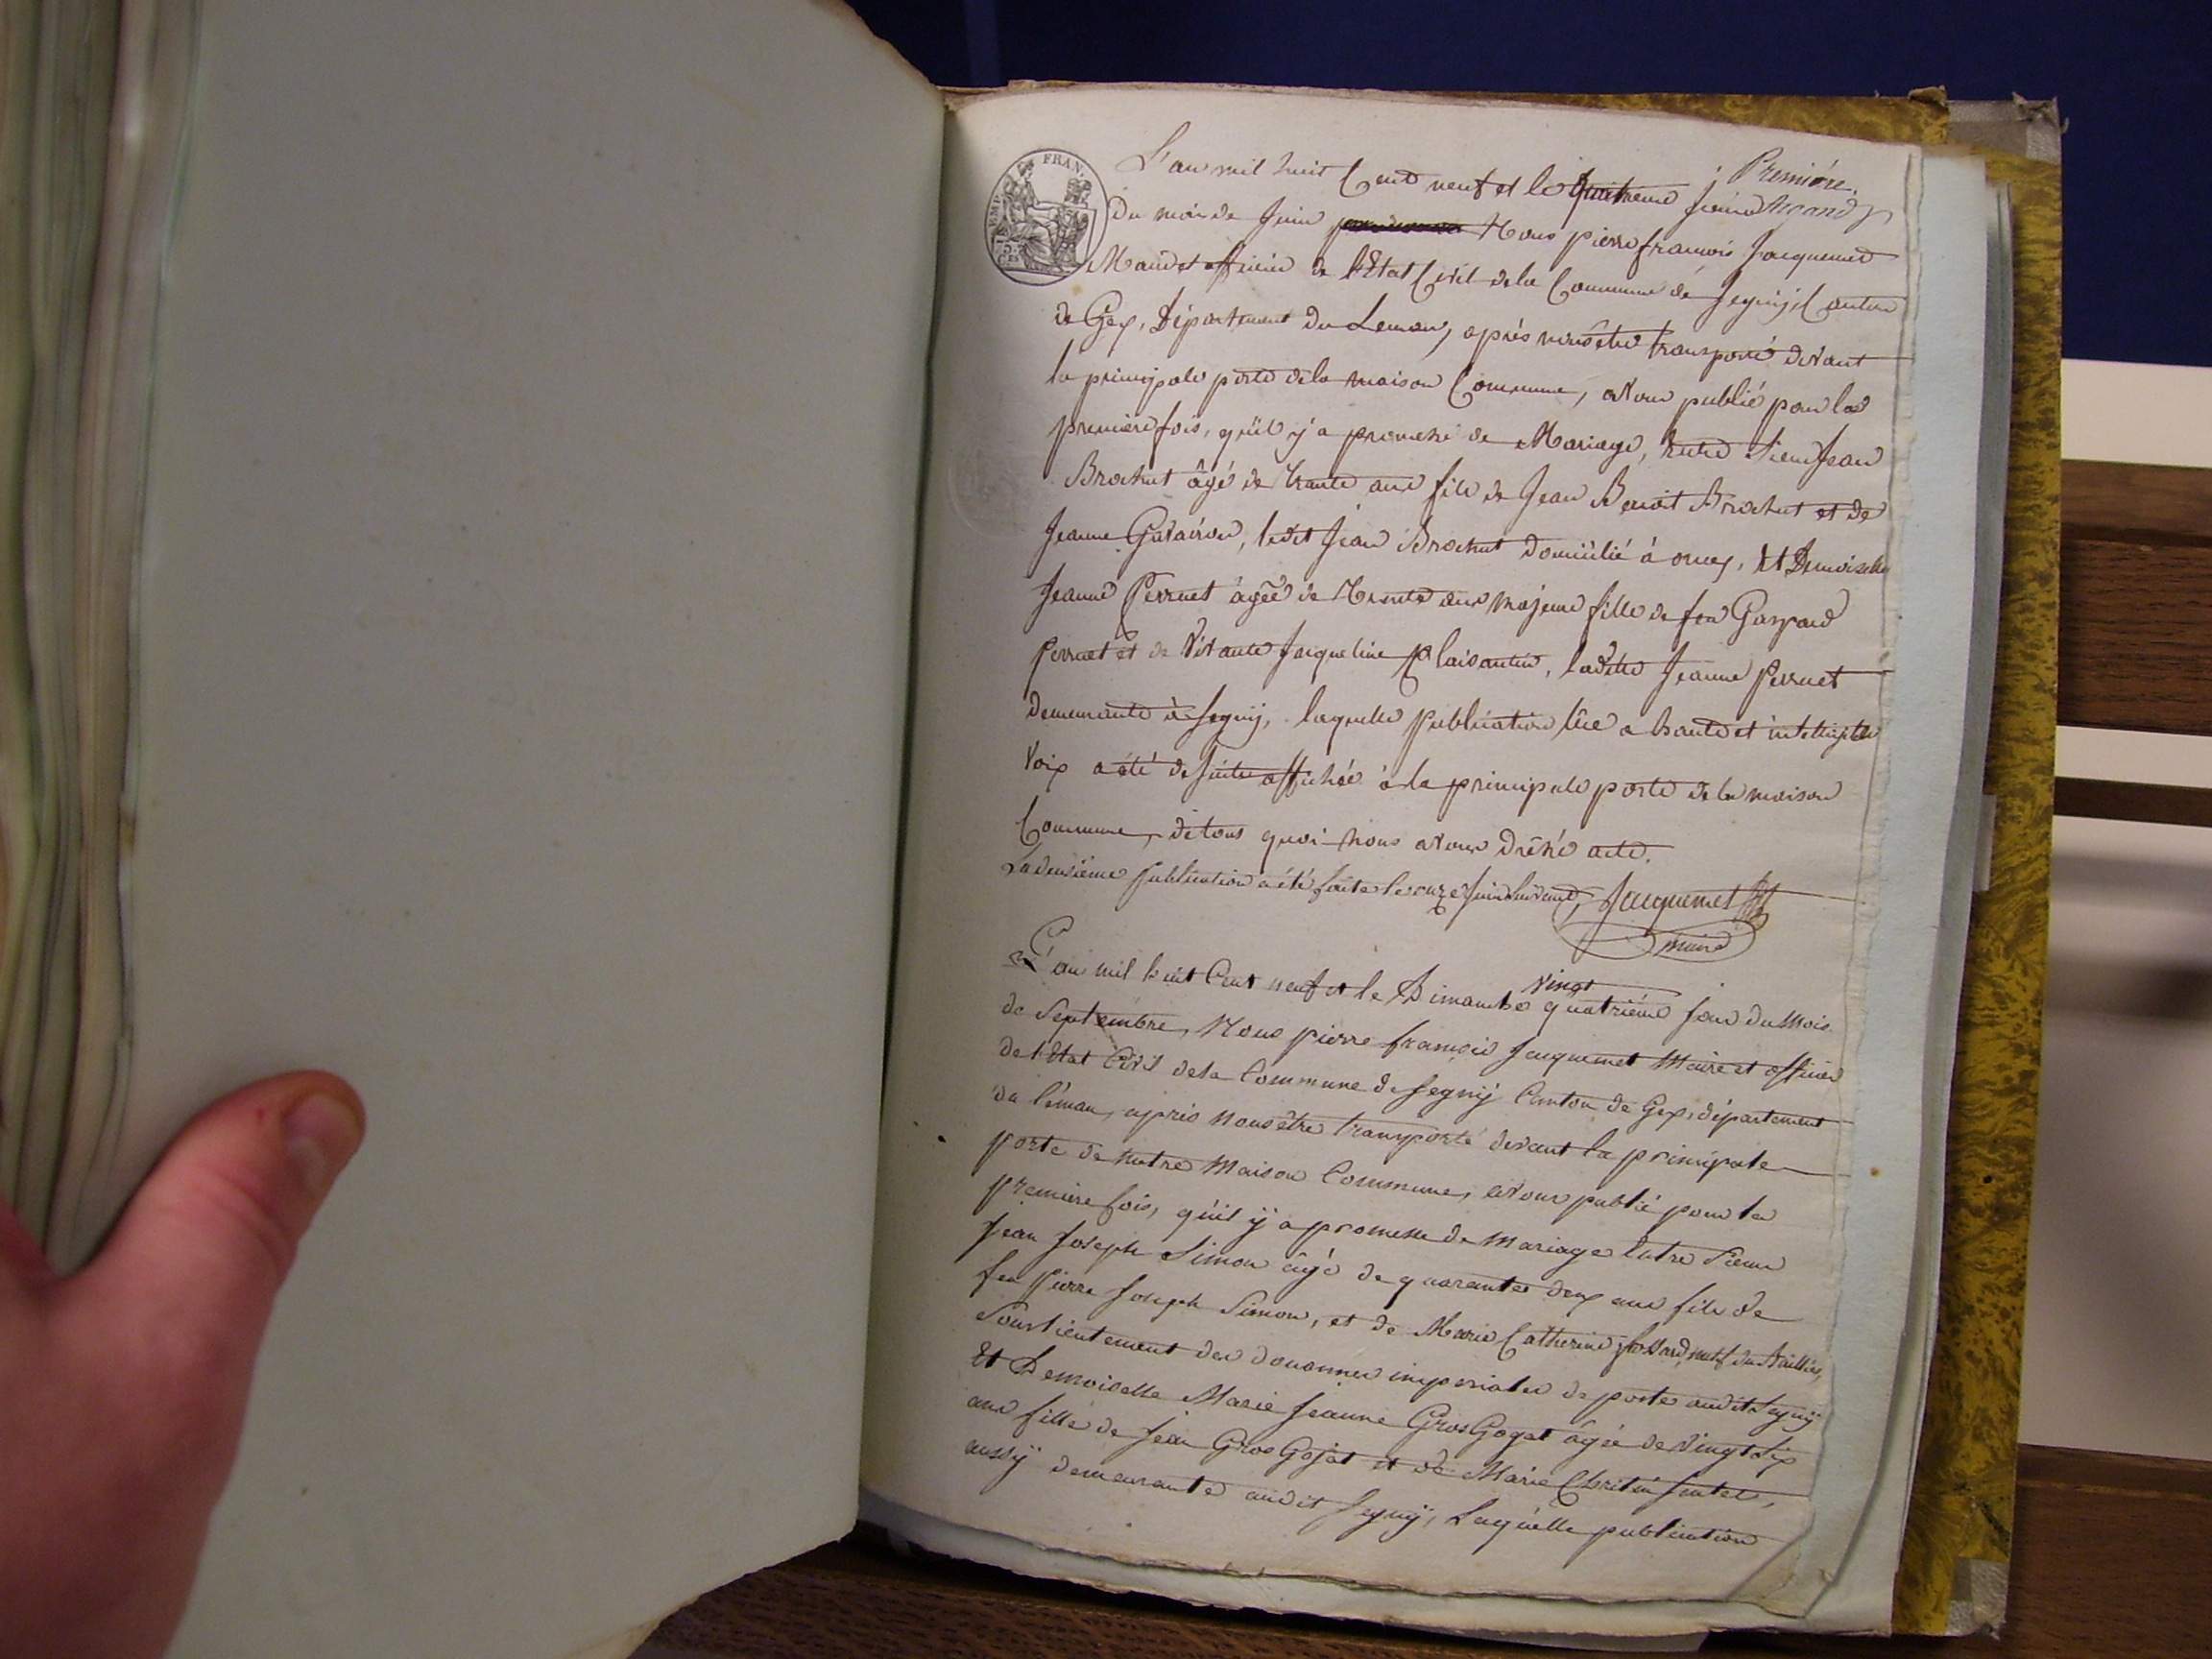 Première.
EMP. FRAN.
75 Ces
L'an mil huit Cent neuf et le quatrieme jour
du mois de Juin Nous pierre francois Jacquemet
Maire et officier de l'Etat Civil de la Commune de Segnij, Canton
de Gex, Département du Leman, après nous être transporté devant
la principale porte de la maison Commune, avons publié pour la
premiere fois, qu'il y a promesse de Mariage, Entre Sieur Jean
Brachut âgé de trante ans fils de Jean Benoit Brachut et de
Jeanne Gavairon, ledit Jean Brachut domicilié à ornex, Et Demoiselle
Jeanne Perruet âgée de trente ans majeure fille de feu Gaspard
Perruet et de vivante Jacqueline Plaisantin, ladite Jeanne Perruet
demeurante à Segnij, laquelle publication lüe a haute et intelligible
voix a été de suite affichée à la principale porte de la maison
Commune, de tous quoi nous avons dréssé acte.
La deusième publication a été faite le onze Juin suivant, Jacquemet
maire
L'an mil huit Cent neuf et le Dimanche vingt quatrième jour du Mois
de Septembre, Nous pierre francois Jacquemet Maire et officier
de l'Etat Civil de la Commune de Segnij Canton de Gex, département
du léman, après nous être transporté devant la principale
porte de notre Maison Commune, avons publié pour la
premiere fois, qu'il ÿ a promesse de mariage Entre Sieur
Jean Joseph Simon âgé de quarantes deux ans fils de
feu Pierre Joseph Simon, et de Marie Catherine
Sourlientement des douannes imperiales de poste audit Segnij
Et Demoiselle Marie Jeanne Gros Gogat âgée de vingt six
ans fille de Jean Gros Gojat et de Marie
aussÿ demeurante audit Segnÿ, Laquelle publication